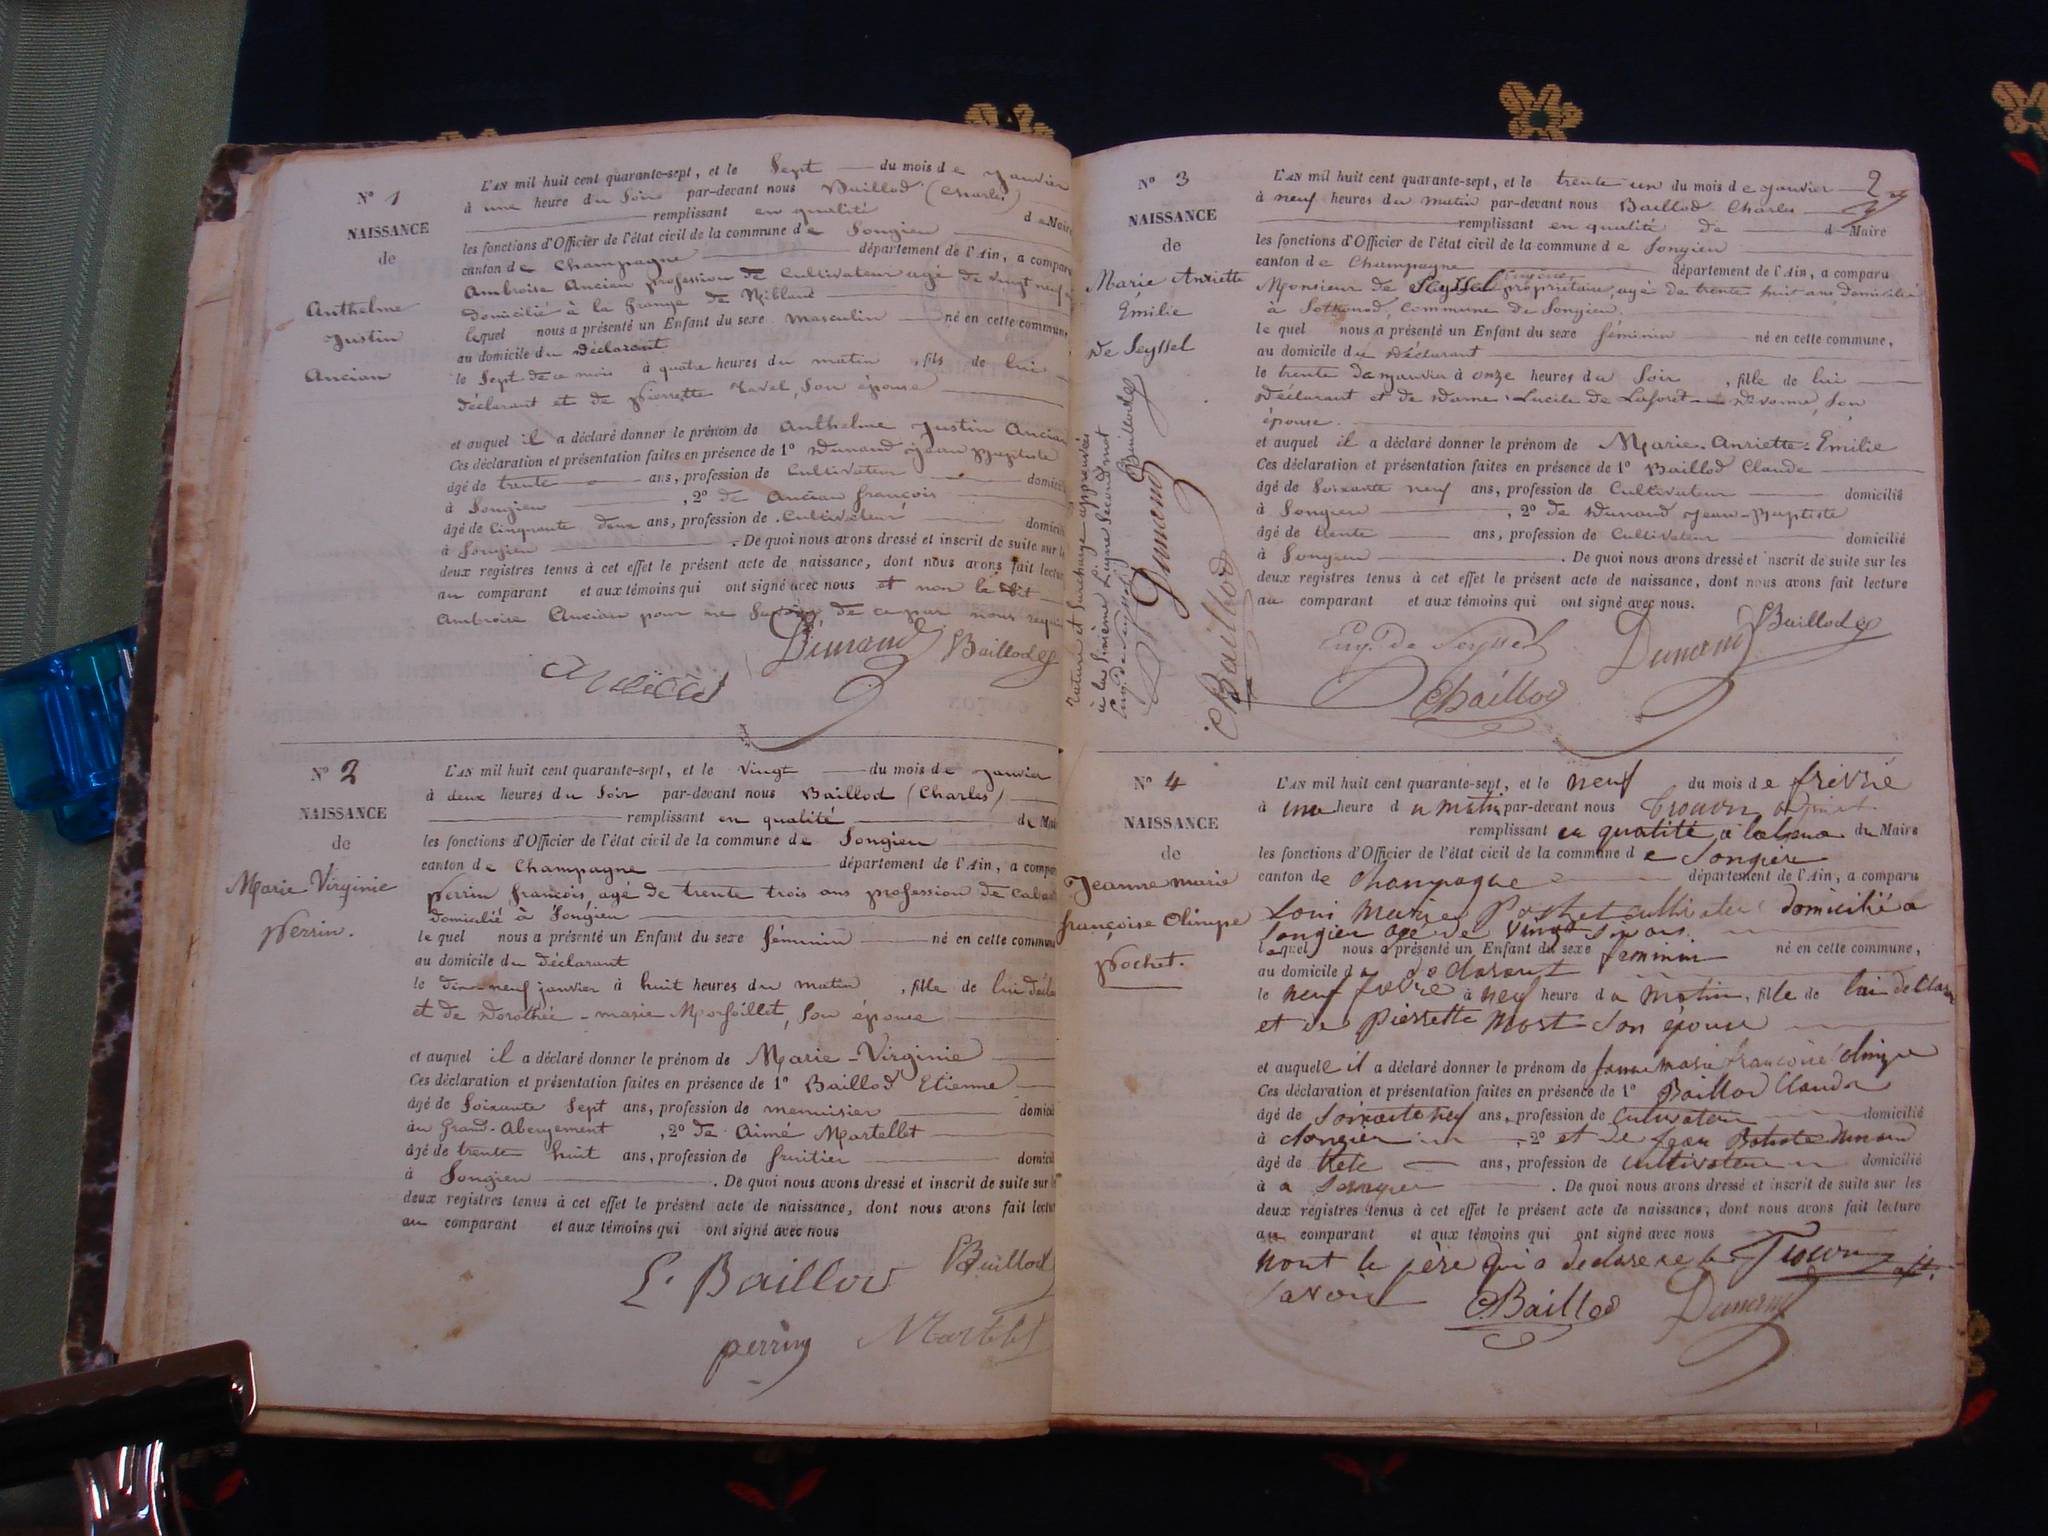 N° 1
NAISSANCE
de
Anthelme
Justin
Ancian
L'AN mil huit cent quarante-sept, et le Sept du mois de Janvier
à une heure du Soir par-devant nous Baillod (Charles)
remplissant en qualité de Maire
les fonctions d'Officier de l'état civil de la commune de Songieu
canton de Champagne département de l'Ain, a comparu
Ambroise Ancian profession de Cultivateur agé de vingt neuf
Domicilié à la Grange de
lequel nous a présenté un Enfant du sexe masculin né en cette commune,
au domicile du Déclarant
le Sept de ce mois à quatre heures du matin, fils de lui
déclarant et de Pierrette Ravel, Son épouse
et auquel il a déclaré donner le prénom de Anthelme Justin Ancian
Ces déclaration et présentation faites en présence de 1° Dunand Jean Baptiste
âgé de trente ans, profession de Cultivateur domicilié
à Songieu, 2° de Ancian françois
âgé de Cinquante deux ans, profession de Cultivateur domicilié
à Songieu. De quoi nous avons dressé et inscrit de suite sur les
deux registres tenus à cet effet le présent acte de naissance, dont nous avons fait lecture
au comparant et aux témoins qui ont signé avec nous et non le dit
Ambroise Ancian pour ne Savoir, de ce par nous requis
Dunand Baillod
N° 2
NAISSANCE
de
Marie Virginie
Perrin.
L'AN mil huit cent quarante-sept, et le vingt du mois de Janvier
à deux heures du Soir par-devant nous Baillod (Charles)
remplissant en qualité de Maire
les fonctions d'Officier de l'état civil de la commune de Songieu
canton de Champagne département de l'Ain, a comparu
Perrin françois, agé de trente trois ans profession de
domicilié à Songieu
le quel nous a présenté un Enfant du sexe féminin né en cette commune
au domicile du Déclarant
le dix neuf janvier à huit heures du matin, fille de lui décla
et de Dorothée-marie Morfoillet, Son épouse
et auquel il a déclaré donner le prénom de Marie-Virginie
Ces déclaration et présentation faites en présence de 1° Baillod Etienne
âgé de Soixante Sept ans, profession de menuisier domicilié
au Grand-Abergement, 2° de Aimé Martellet
âgé de trente huit ans, profession de fruitier domicilié
à Songieu. De quoi nous avons dressé et inscrit de suite sur les
deux registres tenus à cet effet le présent acte de naissance, dont nous avons fait lecture
au comparant et aux témoins qui ont signé avec nous
E. Baillod Baillod
perrin Martelet
2
N° 3
NAISSANCE
de
Marie Anriette
Émilie
De Seyssel
Rature et Surcharge approuvées
à la Sixième Ligne Second mot
Eug. de Seyssel Baillod
Dunand
CBaillod
L'AN mil huit cent quarante-sept, et le trente un du mois de Janvier
à neuf heures du matin par-devant nous Baillod Charles
remplissant en qualité de Maire
les fonctions d'Officier de l'état civil de la commune de Songieu
canton de Champagne département de l'Ain, a comparu
Monsieur de Seyssel Eugène propriétaire, agé de trente huit ans, domicilié
à Sothonod, Commune de Songieu.
le quel nous a présenté un Enfant du sexe féminin né en cette commune,
au domicile du Déclarant
le trente de Janvier à onze heures du Soir, fille de lui
Déclarant et de Dame Lucile de Laforet Divonne, Son
épouse.
et auquel il a déclaré donner le prénom de Marie-Anriette-Émilie
Ces déclaration et présentation faites en présence de 1° Baillod Claude
âgé de Soixante neuf ans, profession de Cultivateur domicilié
à Songieu, 2° de Dunand Jean-Baptiste
âgé de trente ans, profession de Cultivateur domicilié
à Songieu. De quoi nous avons dressé et inscrit de suite sur les
deux registres tenus à cet effet le présent acte de naissance, dont nous avons fait lecture
au comparant et aux témoins qui ont signé avec nous.
Eug. de Seyssel Dunand Baillod
CBaillod
N° 4
NAISSANCE
de
Jeanne marie
françoise Olimpe
Pochet.
L'AN mil huit cent quarante-sept, et le neuf du mois de frévrié
à une heure du matin par-devant nous
remplissant en qualité du Maire
les fonctions d'Officier de l'état civil de la commune de Songieu
canton de Champagne département de l'Ain, a comparu
Loui Marie Pochet cultivateur domicilié a
Songieu agé de vingt
lequel nous a présenté un Enfant du sexe feminin né en cette commune,
au domicile du declarant
le neuf à neuf heure du matin, fille de lui declaran
et de pierrette Most Son épouse
et auquel il a déclaré donner le prénom de Janne marie francoise Olimpe
Ces déclaration et présentation faites en présence de 1° Baillod Claude
âgé de Soixante neuf ans, profession de Cultivateur domicilié
à Songieu, 2° et de Jean Batiste Dunand
âgé de ans, profession de cultivateur domicilié
à a Songieu. De quoi nous avons dressé et inscrit de suite sur les
deux registres tenus à cet effet le présent acte de naissance, dont nous avons fait lecture
au comparant et aux témoins qui ont signé avec nous
nont le père qui a declare ne le
Savoir CBaillod Dunand